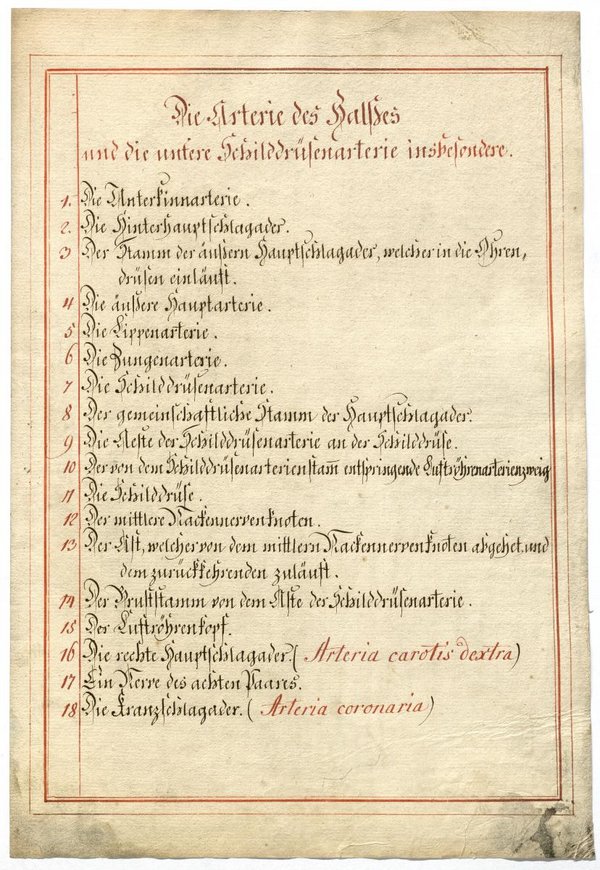 Die Arterie des Halßes
und die untere Schilddrüsenarterie insbesondere.
1. Die Unterkinnarterie.
2. Die Hinterhauptschlagader.
3 Der Stamm der äussern Hauptschlagader, welcher in die Ohren-
drüsen einläuft.
4 Die äussere Hauptarterie.
5 Die Lippenarterie.
6 Die Zungenarterie.
7 Die Schilddrüsenarterie.
8 Der gemeinschaftliche Stamm der Hauptschlagader.
9 Die Aeste der Schilddrüsenarterie an der Schilddrüse.
10 Der von dem Schilddrüsenarterienstam̅ entspringende Luftröhrenarterienzweig
11 Die Schilddrüse.
12 Der mittlere Nackennervenknoten.
13 Der Ast, welcher von dem mittlern Nackennervenknoten abgehet und
dem zurückkehrenden zuläuft.
14 Der Bruststamm von dem Aste der Schilddrüsenarterie.
15 Der Luftröhrenkopf.
16 Die rechte Hauptschlagader. (Arteria carotis dextra)
17 Ein Nerve des achten Paares.
18 Die Kranzschlagader. (Arteria coronaria)